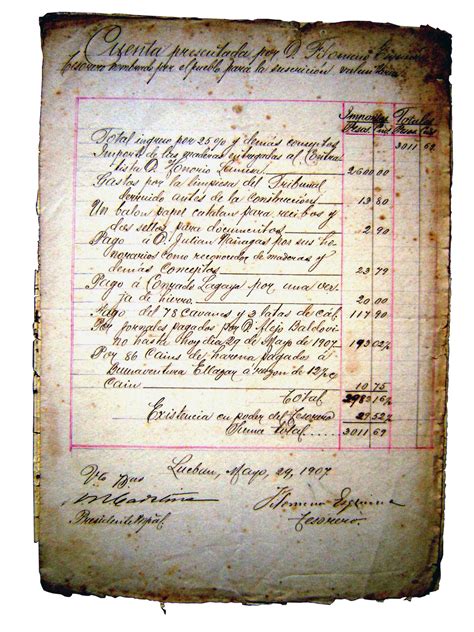 Cuenta presentada por D. Filomeno
Tesorero nombrado por el pueblo para la suscricion voluntaria
Importes Totales
Pesos Cts Pesos Cts
Total ingreso por 25% y demás conceptos 3011 69
Importe de las maderas entregadas al Contra
tista D. Honorio 2600.00
Gastos por la limpiesa del Tribunal
derruido antes de la construccion 13 80
Un balon papel catalan para recibos y
dos sellos para documentos 2 90
Pago á D. Julian por sus ho
norarios como reconocedor de maderas y
demás conceptos 23 79
Pago á Conrado Lagaya por una ver
ja de hierro 20 00
Pago del 78 cavanes y 3 latas de cal 117 90
Por jornales pagados por D. Alejo Baldovi
no hasta hoy dia 29 de Mayo de 1907 193 02½
Por 86 Cains de harena pagados á
Buenaventura á razon de 12½ c
cain 10 75
Total 2982 16½
Existencia en poder del Tesorero 29 52½
Suma total 3011 69
Lucban, Mayo, 29, 1907
Vto Bno
Filomeno
Presidente Mpal.
Tesorero